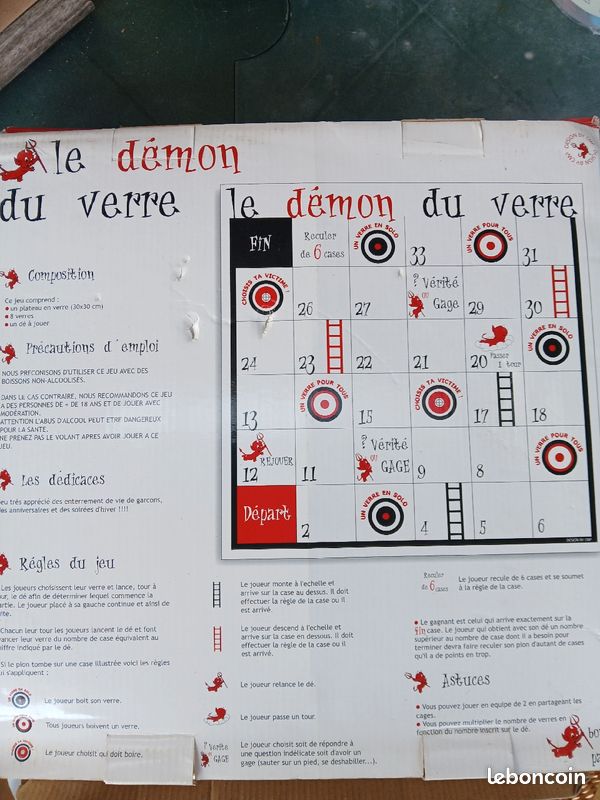 le démon
du verre
DESIGN BY CMP
le démon du verre
FIN
Reculer
de 6 cases
UN VERRE EN SOLO
33
UN VERRE POUR TOUS
31
CHOISIS TA VICTIME !
26
27
? Vérité
ou
Gage
29
30
24
23
22
21
20
Passer
1 tour
UN VERRE EN SOLO
13
UN VERRE POUR TOUS
15
CHOISIS TA VICTIME !
17
18
12
REJOUER
11
? Vérité
ou
GAGE
9
8
UN VERRE POUR TOUS
Départ
2
UN VERRE EN SOLO
4
5
6
DESIGN BY CMP
Composition
Ce jeu comprend :
• un plateau en verre (30x30 cm)
• 8 verres
• un dé à jouer
Précautions d'emploi
NOUS PRECONISONS D'UTILISER CE JEU AVEC DES
BOISSONS NON-ALCOOLISES.
DANS LE CAS CONTRAIRE, NOUS RECOMMANDONS CE JEU
A DES PERSONNES DE + DE 18 ANS ET DE JOUER AVEC
MODÉRATION.
ATTENTION L'ABUS D'ALCOOL PEUT ETRE DANGEREUX
POUR LA SANTE.
NE PRENEZ PAS LE VOLANT APRES AVOIR JOUER A CE
JEU.
Les dédicaces
jeu très apprécié des enterrement de vie de garcons,
des anniversaires et des soirées d'hiver !!!!
Régles du jeu
Les joueurs choisissent leur verre et lance, tour à
tour, le dé afin de déterminer lequel commence la
partie. Le joueur placé à sa gauche continue et ainsi de
suite.
Chacun leur tour les joueurs lancent le dé et font
avancer leur verre du nombre de case équivalent au
chiffre indiqué par le dé.
Si le pion tombe sur une case illustrée voici les règles
qui s'appliquent :
Le joueur boit son verre.
Tous joueurs boivent un verre.
Le joueur choisit qui doit boire.
Le joueur monte à l'echelle et
arrive sur la case au dessus. Il doit
effectuer la règle de la case ou il
est arrivé.
Le joueur descend à l'echelle et
arrive sur la case en dessous. Il doit
effectuer la règle de la case ou il
est arrivé.
Le joueur relance le dé.
Le joueur passe un tour.
? Vérité
ou
GAGE
Le joueur choisit soit de répondre à
une question indélicate soit d'avoir un
gage (sauter sur un pied, se deshabiller...).
Reculer
de 6 cases
Le joueur recule de 6 cases et se soumet
à la règle de la case.
• Le gagnant est celui qui arrive exactement sur la
fin case. Le joueur qui obtient avec son dé un nombre
supérieur au nombre de case dont il a besoin pour
terminer devra faire reculer son pion d'autant de cases
qu'il a de points en trop.
Astuces
• Vous pouvez jouer en equipe de 2 en partageant les
gages.
• Vous pouvez multiplier le nombre de verres en
fonction du nombre inscrit sur le dé.
leboncoin